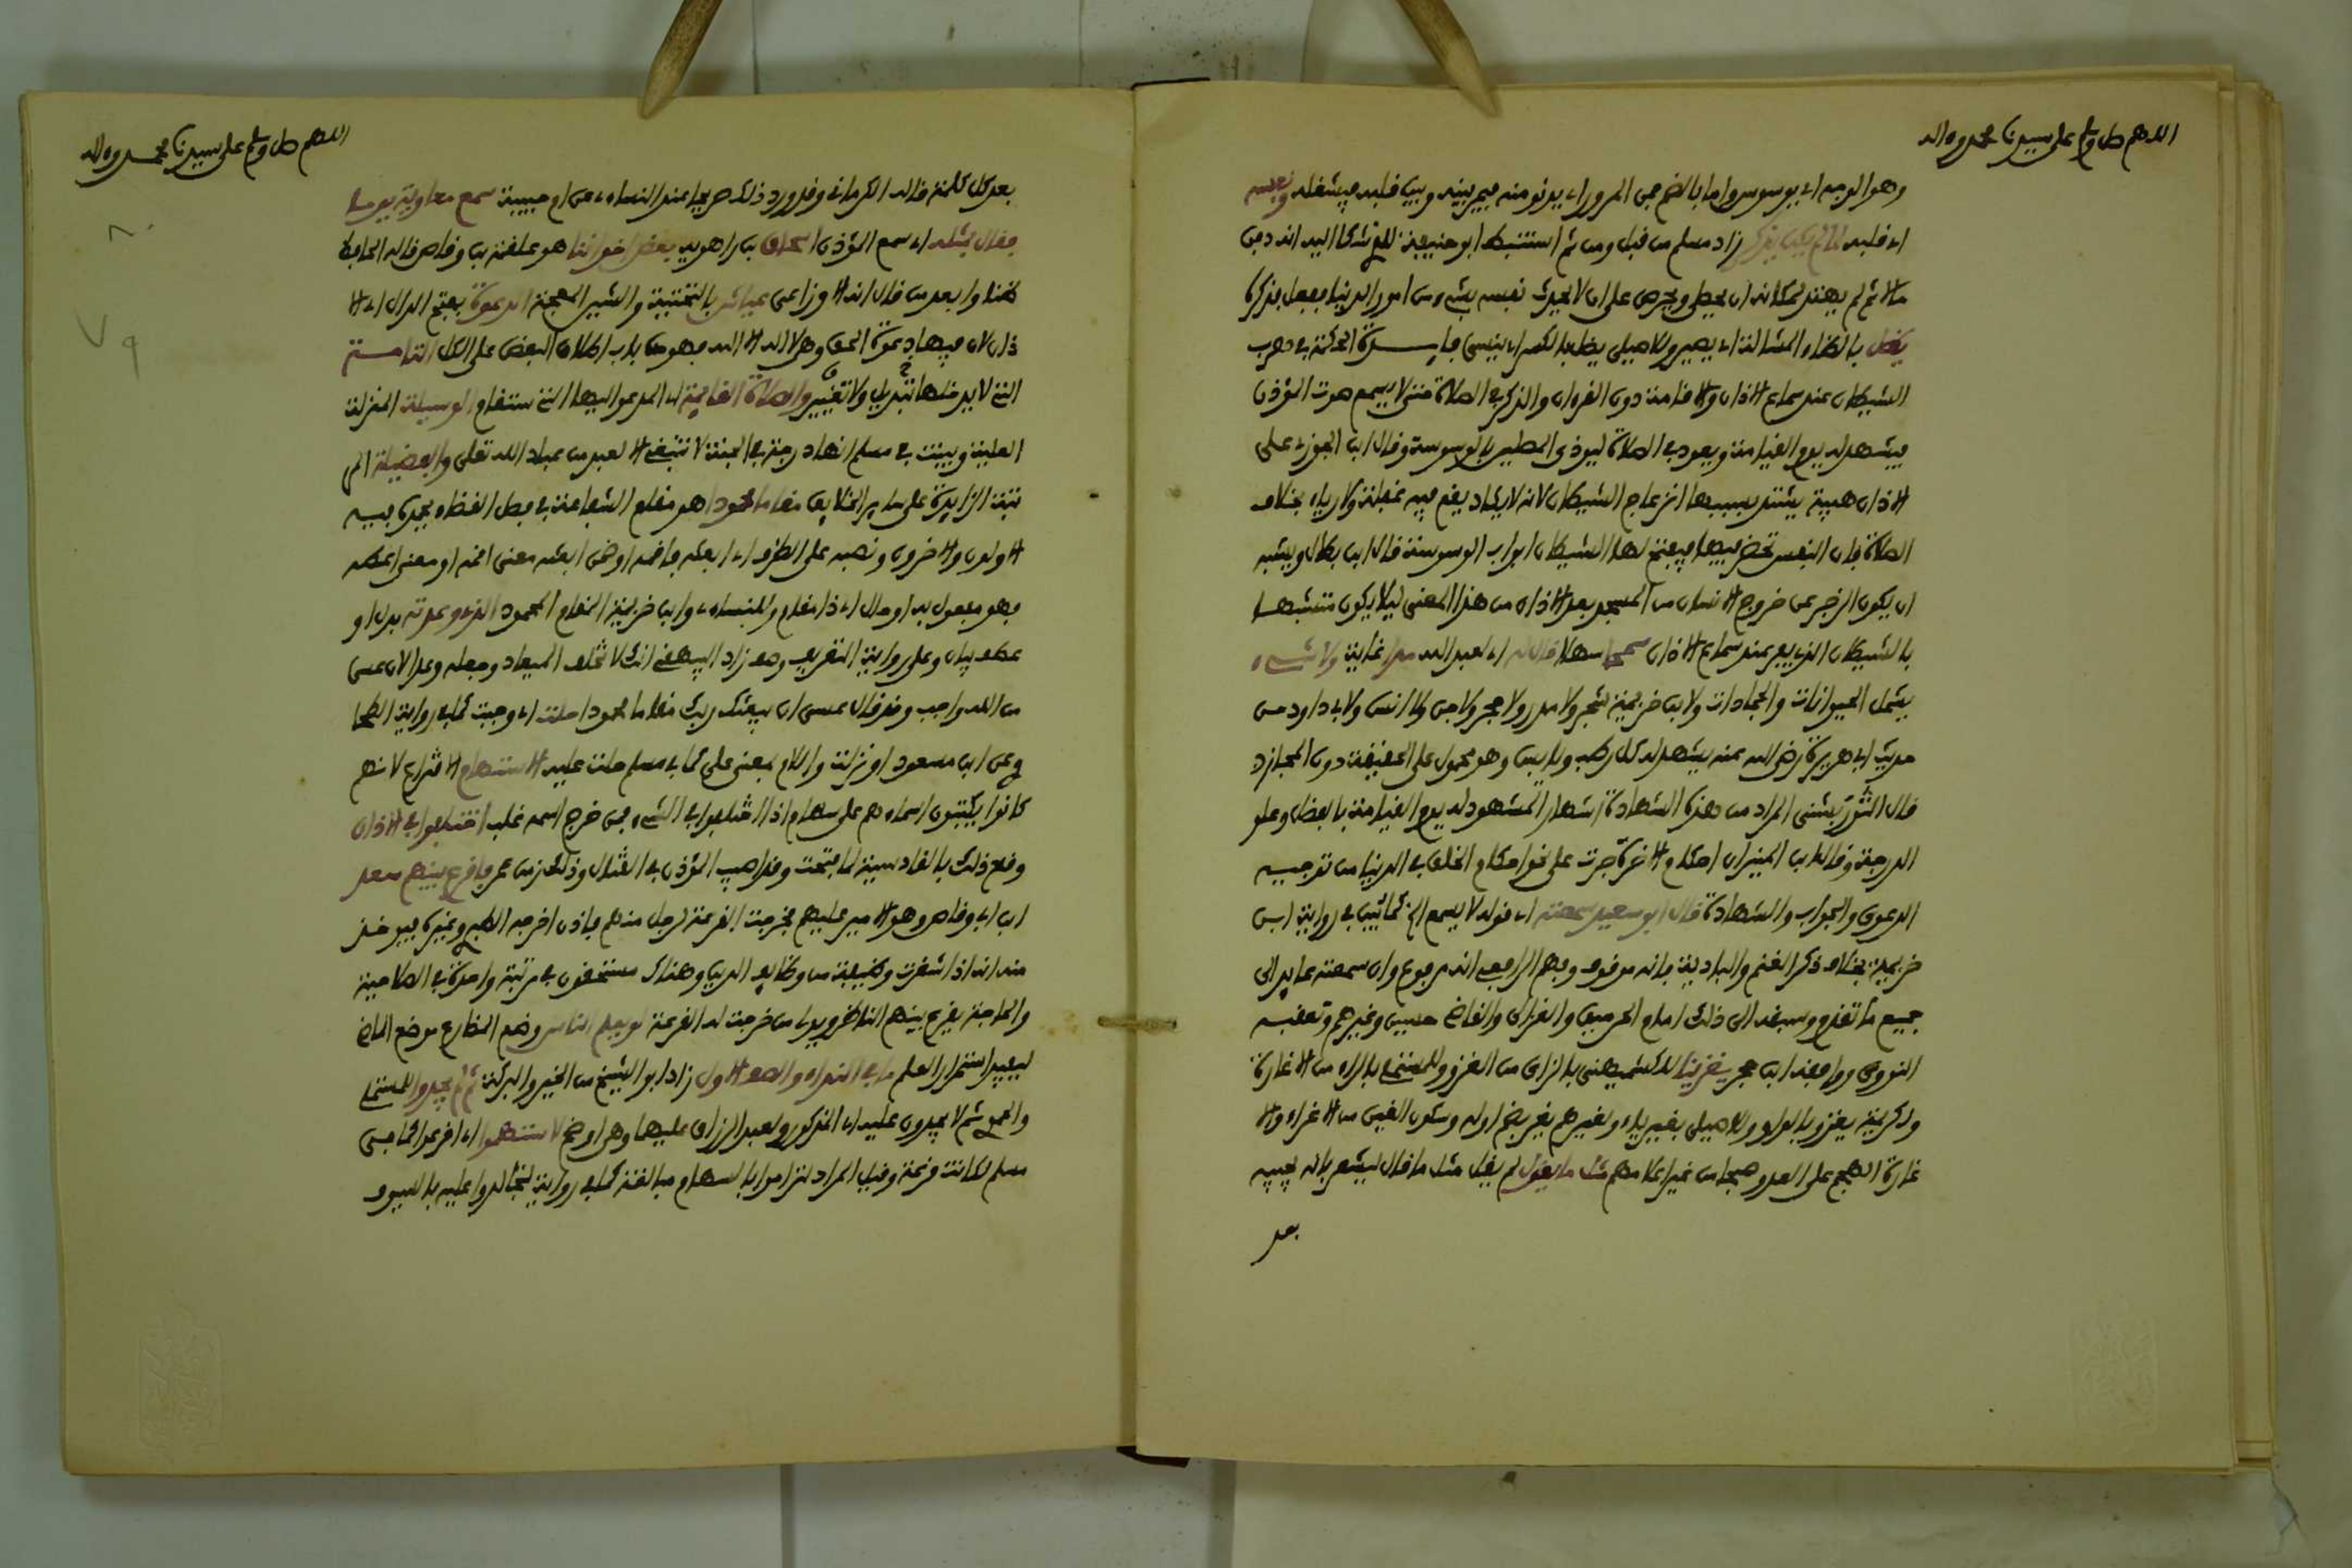 اللهم صل وسلم على سيدنا محمد وءاله
وهو الوجه اي يوسوس واما بالضم فمن المرور اي يدنو منه فيمر بينه وبين قلبه فيشغله ونفسه
اي قلبه لما لم يكن يذكر زاد مسلم من قبل ومن ثم استنبط ابو حنيفة للذي شكا اليه انه دفن
مالا ثم لم يهتد لمكانه ان يصلي ويحرص على ان لا يحدث نفسه بشيء من امور الدنيا ففعل فذكره
يضل بالضاد المشالة اي يصير وللاصيلي يضل بالكسر اي ينسى فايدة الحكمة في هرب
الشيطان عند سماع الاذان والاقامة دون القرءان والذكر في الصلاة حتى لا يسمع صوت المؤذن
فيشهد له يوم القيامة ويعود في الصلاة ليوذي المصلي بالوسوسة وقال ابن الجوزي على
الاذان هيبة يشتد بسببها انزعاج الشيطان لانه لا يكاد يقع فيه غفلة ولا رياء بخلاف
الصلاة فان النفس تحضر فيها فيفتح لها الشيطان ابواب الوسوسة قال ابن بطال ويشبه
ان يكون الزجر عن خروج الانسان من المسجد بعد الاذان من هذا المعنى ليلا يكون متشبها
بالشيطان الذي يفر عند سماع الاذان سمحا سهلا قال له اي لعبد الله مدا غاية ولا شيء
يشمل الحيوانات والجمادات ولابن خزيمة شجر ولا مدر ولا حجر ولا جن ولا انس ولابي داود من
حديث ابي هريرة رضي الله عنه يشهد له كل رطب ويابس وهو محمول على الحقيقة دون المجاز
قال التوربشتي المراد من هذه الشهادة اشهار المشهود له يوم القيامة بالفضل وعلو
الدرجة وقال ابن المنير ان احكام الاخرة جرت على نحو احكام الخلق في الدنيا من توجيه
الدعوى والجواب والشهادة قال ابو سعيد سمعته اي قوله لا يسمع الخ كما تبين في رواية ابن
خزيمة بخلاف ذكر الغنم والبادية فانه موقوف وفهم الرافعي انه مرفوع وان سمعته عايد الى
جميع ما تقدم وسبقه الى ذلك امام الحرمين والغزالي والقاضي حسين وغيرهم وتعقبه
النووي ووافقه ابن حجر يغزينا للكشميهني بالزاي من الغزو وللمستملي بالراء من الاغارة
ولكريمة يغزو بالواو وللاصيلي يغير بياء ولغيرهم يغر بضم اوله وسكون الغين من الاغراء والا
غارة الهجم على العدو صبحا من غير اعلامهم مثل ما يقول لم يقل مثل ما قال ليشعر بانه يجيبه
بعد
اللهم صل وسلم على سيدنا محمد وءاله
بعد كل كلمة قاله الكرماني وقد ورد ذلك صريحا عند النساءي عن ام حبيبة سمع معاوية يوما
فقال مثله اي سمع المؤذن اسحاق بن راهويه بعض اخواننا هو علقمة بن وقاص قاله الحافظ
ظنا وابعد من قال انه الاوزاعي عياش بالتحتية والشين المعجمة الدعوة بفتح الدال اي الا
ذان لان فيها دعوة الحق وهي لا اله الا الله فهو من باب اطلاق البعض على الكل التامة
التي لا يدخلها تبديل ولا تغيير والصلاة القايمة اي المدعو اليها التي ستقام الوسيلة المنزلة
العلية وبينت في مسلم انها درجة في الجنة لا تنبغي الا لعبد من عباد الله تعلى والفضيلة المر
تبة الزايدة على ساير الخلايق مقاما محمودا هو مقام الشفاعة في فصل القضاء يحمده فيه
الاولون والاخرون ونصبه على الظرف اي ابعثه فاقمه او ضمن ابعثه معنى اقمه او معنى اعطه
فهو مفعول به او حال اي ذا مقام وللنساءي وابن خزيمة المقام المحمود الذي وعدته بدل او
عطف بيان وعلى رواية التعريف وصف زاد البيهقي انك لا تخلف الميعاد وجعله وعدا لان عسى
من الله واجب وقد قال عسى ان يبعثك ربك مقاما محمودا حلت اي وجبت كما في رواية الطحا
وي عن ابن مسعود او نزلت واللام بمعنى على كما في مسلم حلت عليه الاستهام الاقتراع لانهم
كانوا يكتبون اسماءهم على سهام اذا اختلفوا في الشيء فمن خرج اسمه غلب اختلفوا في الاذان
وقع ذلك بالقادسية لما فتحت وقد اصيب المؤذن في القتال وذلك زمن عمر فاقرع بينهم سعد
ابن ابي وقاص وهو الامير عليهم فخرجت القرعة لرجل منهم فاذن اخرجه الطبري وغيره فيوخذ
منه انه اذا شغرت وظيفة من وظايف الدين وهناك مستحقون في مرتبة واحدة في الصلاحية
والحاجة يقرع بينهم الناظر ويولي من خرجت له القرعة لو يعلم الناس وضع المضارع موضع الماضي
ليفيد استمرار العلم ما في النداء والصف الاول زاد ابو الشيخ من الخير والبركة ثم لم يجدوا للمستملي
والحموي ثم لا يجدون عليه اي المذكور ولعبد الرزاق عليهما وهو اوضح لاستهموا اي اقترعوا كما جنى
مسلم لكانت قرعة وقيل المراد تراموا بالسهام مبالغة كما في رواية لتجالدوا عليه بالسيوف